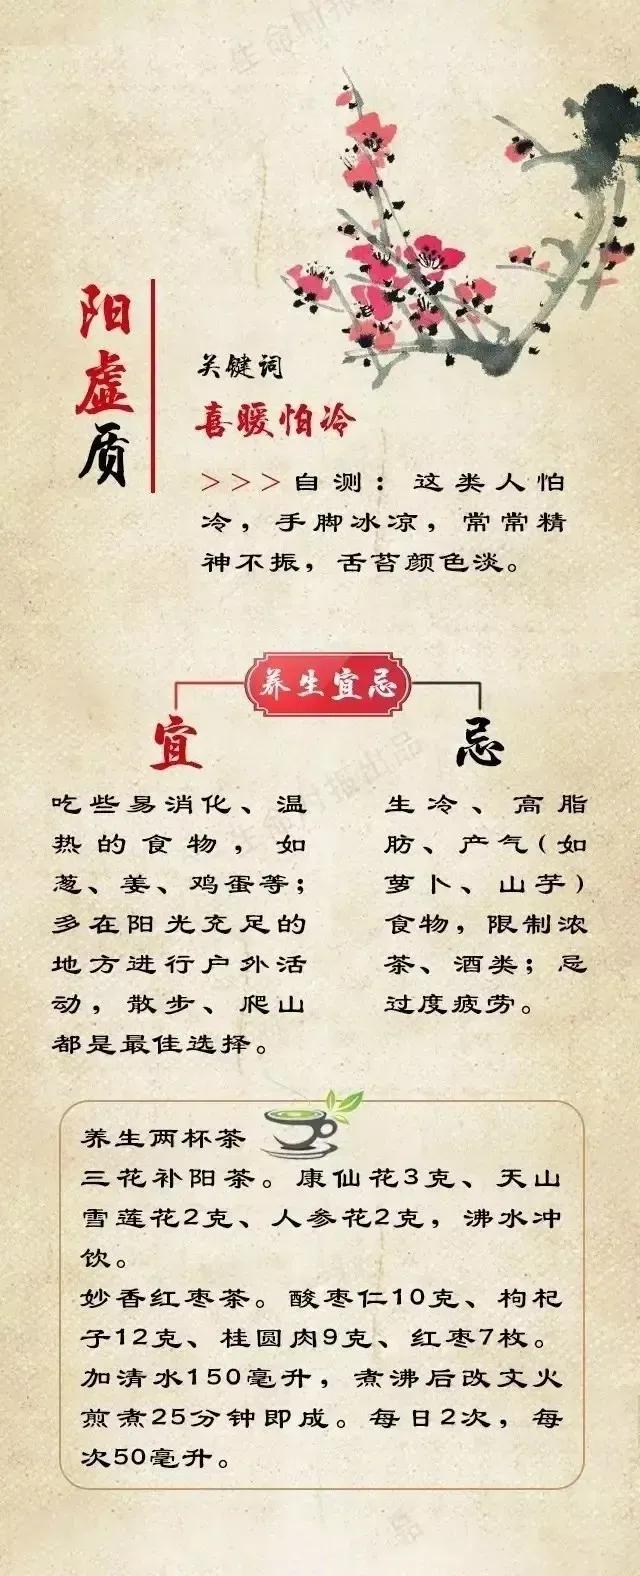 生命时报
阳虚质
关键词
喜暖怕冷
>>>自测：这类人怕
冷，手脚冰凉，常常精
神不振，舌苔颜色淡。
养生宜忌
宜
吃些易消化、温
热的食物，如
葱、姜、鸡蛋等；
多在阳光充足的
地方进行户外活
动，散步、爬山
都是最佳选择。
忌
生冷、高脂
肪、产气（如
萝卜、山芋）
食物，限制浓
茶、酒类；忌
过度疲劳。
生命时报出品
养生两杯茶
三花补阳茶。康仙花3克、天山
雪莲花2克、人参花2克，沸水冲
饮。
妙香红枣茶。酸枣仁10克、枸杞
子12克、桂圆肉9克、红枣7枚。
加清水150毫升，煮沸后改文火
煎煮25分钟即成。每日2次，每
次50毫升。
品